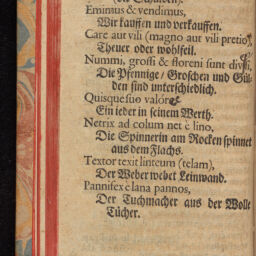 (der Schulden).
Emimus & vendimus,
Wir kauffen und verkauffen.
Care aut vili (magno aut vili pretio),
Theuer oder wohlfeil.
Nummi, grossi & floreni sunt divisi,
Die Pfennige / Groschen und Gül-
den sind unterschiedlich.
Quisque suo valore
Ein ieder in seinem Werth.
Netrix ad colum net è lino,
Die Spinnerin am Rocken spinnet
aus dem Flachs.
Textor texit linteum (telam),
Der Weber webet Leinwand.
Pannifex e lana pannos,
Der Tuchmacher aus der Wolle
Tücher.